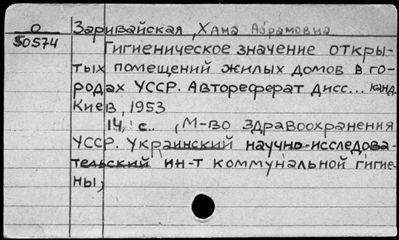 О
50574
Заривайская, Хана Абрамовна
Гигиеническое значение откры-
тых помещений жилых домов в го-
родах УССР. Автореферат дисс... канд.
Киев, 1953
14 с. (М-во здравоохранения
УССР. Украинский научно-исследова-
тельский ин-т коммунальной гигие-
ны)